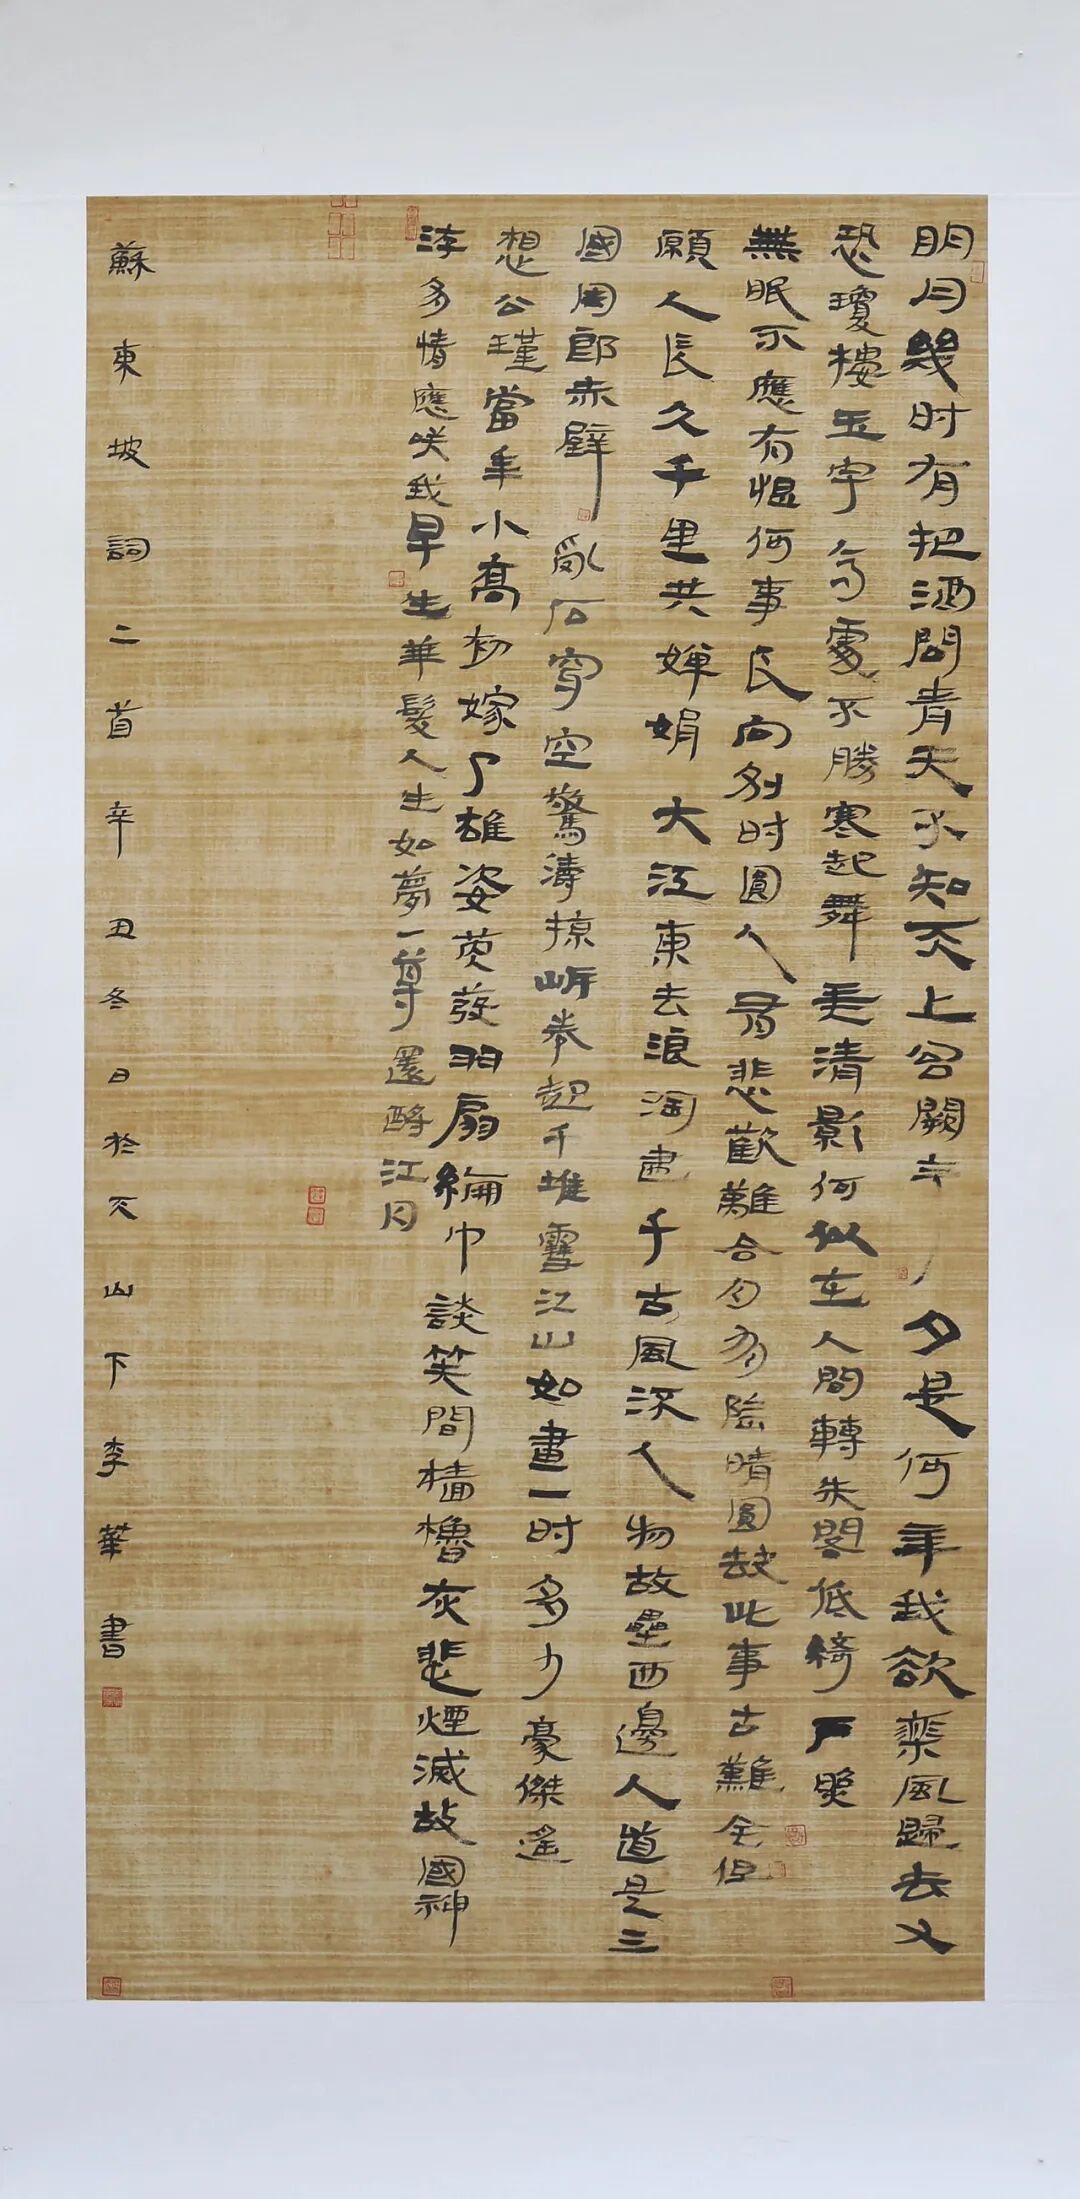 明月幾时有把酒問青天不知天上宮闕今夕是何年我欲乘風歸去又
恐瓊樓玉宇高處不勝寒起舞弄清影何似在人間轉朱閣低綺戶照
無眠不應有恨何事長向别时圓人有悲歡離合月有陰晴圓缺此事古難全但
願人長久千里共嬋娟大江東去浪淘盡千古風流人物故壘西邊人道是三
國周郎赤壁亂石穿空驚濤掠岸拳起千堆雪江山如畫一时多少豪傑遥
想公瑾當年小喬初嫁了雄姿英發羽扇綸巾談笑間檣櫓灰飛煙滅故國神
游多情應咲我早生華髮人生如夢一尊還酹江月
蘇東坡詞二首辛丑冬日於天山下李華書